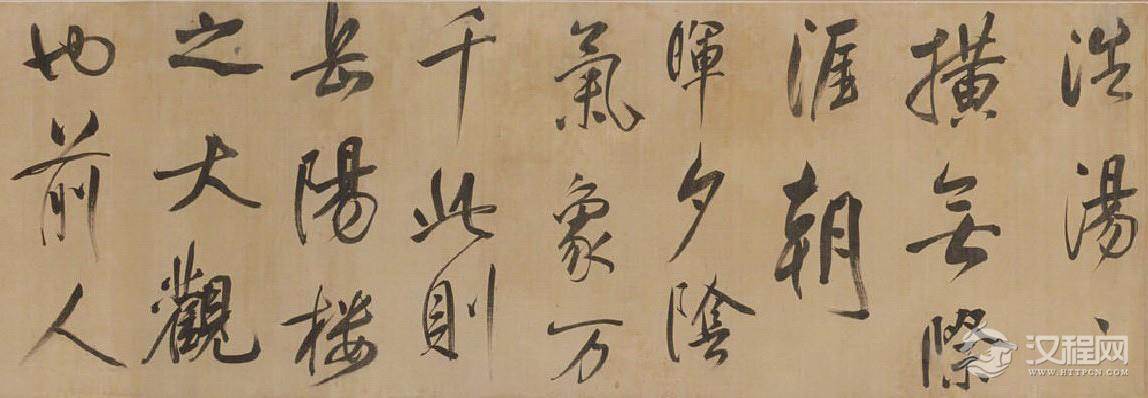 浩湯〻
橫無際
涯朝
暉夕陰
氣象万
千此則
岳陽楼
之大觀
也前人
汉程网
WWW.HTTPCN.COM